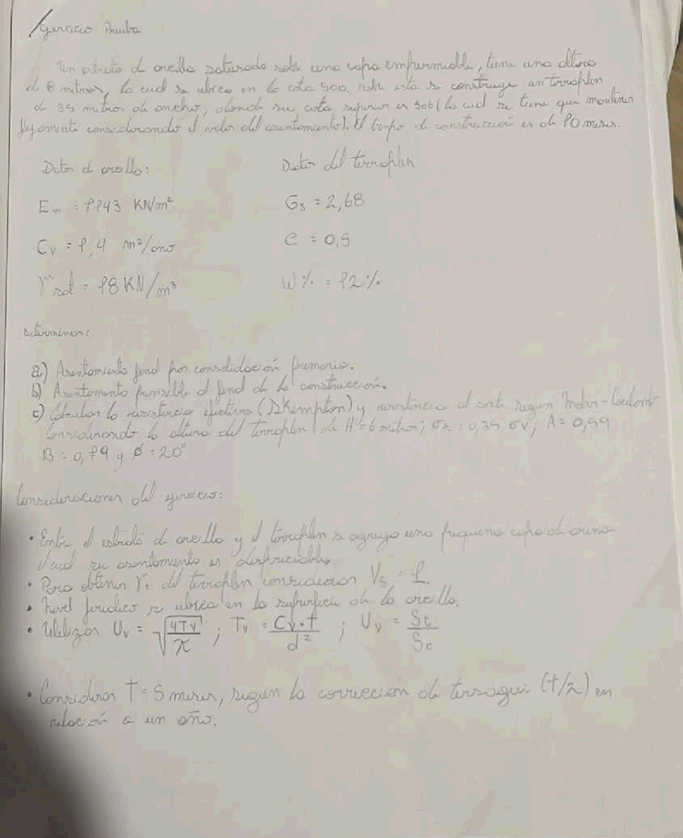 Ejercicio Prueba
Un estrato de arcilla saturado sobre una capa impermeable, tiene una altura
de 6 metros, la cual se ubica en la cota 500, sobre esta se construye un terraplen
de 35 metros de ancho, donde su cota superior es 506 (la cual se tiene que mantener
fijamente considerando el valor del asentamiento). El tiempo de construcción es de 10 meses.
Datos de arcilla:
Datos del terraplen
Em = 1143 KN/m²
Gs = 2,68
Cv = 1,4 m²/año
e = 0,5
γsat = 18 KN/m³
W% = 12%
Determinar:
a) Asentamiento final por consolidación primaria.
b) Asentamiento al final de la construcción.
c) Calcular la resistencia efectiva (Skempton) y resistencia al corte según Mohr-Coulomb
Considerando la altura del terraplen de H = 6 metros; = 0,35 σv; A = 0,59
B = 0,19 y Ø = 20°
Consideraciones del ejercicio:
• Entre el estrato de arcilla y el terraplen se agrega una pequeña capa de arena
el cual su asentamiento es despreciable.
• Para obtener del terraplen considerar Vs = 1.
• Nivel freático se ubica en la superficie de la arcilla.
• Utilizar Uv = √(4Tv/π) ; Tv = Cv·t/d² ; Uv = St/Sc
• Considerar T = 5 meses, según la corrección de terzagui (t/2) en
relación a un año.